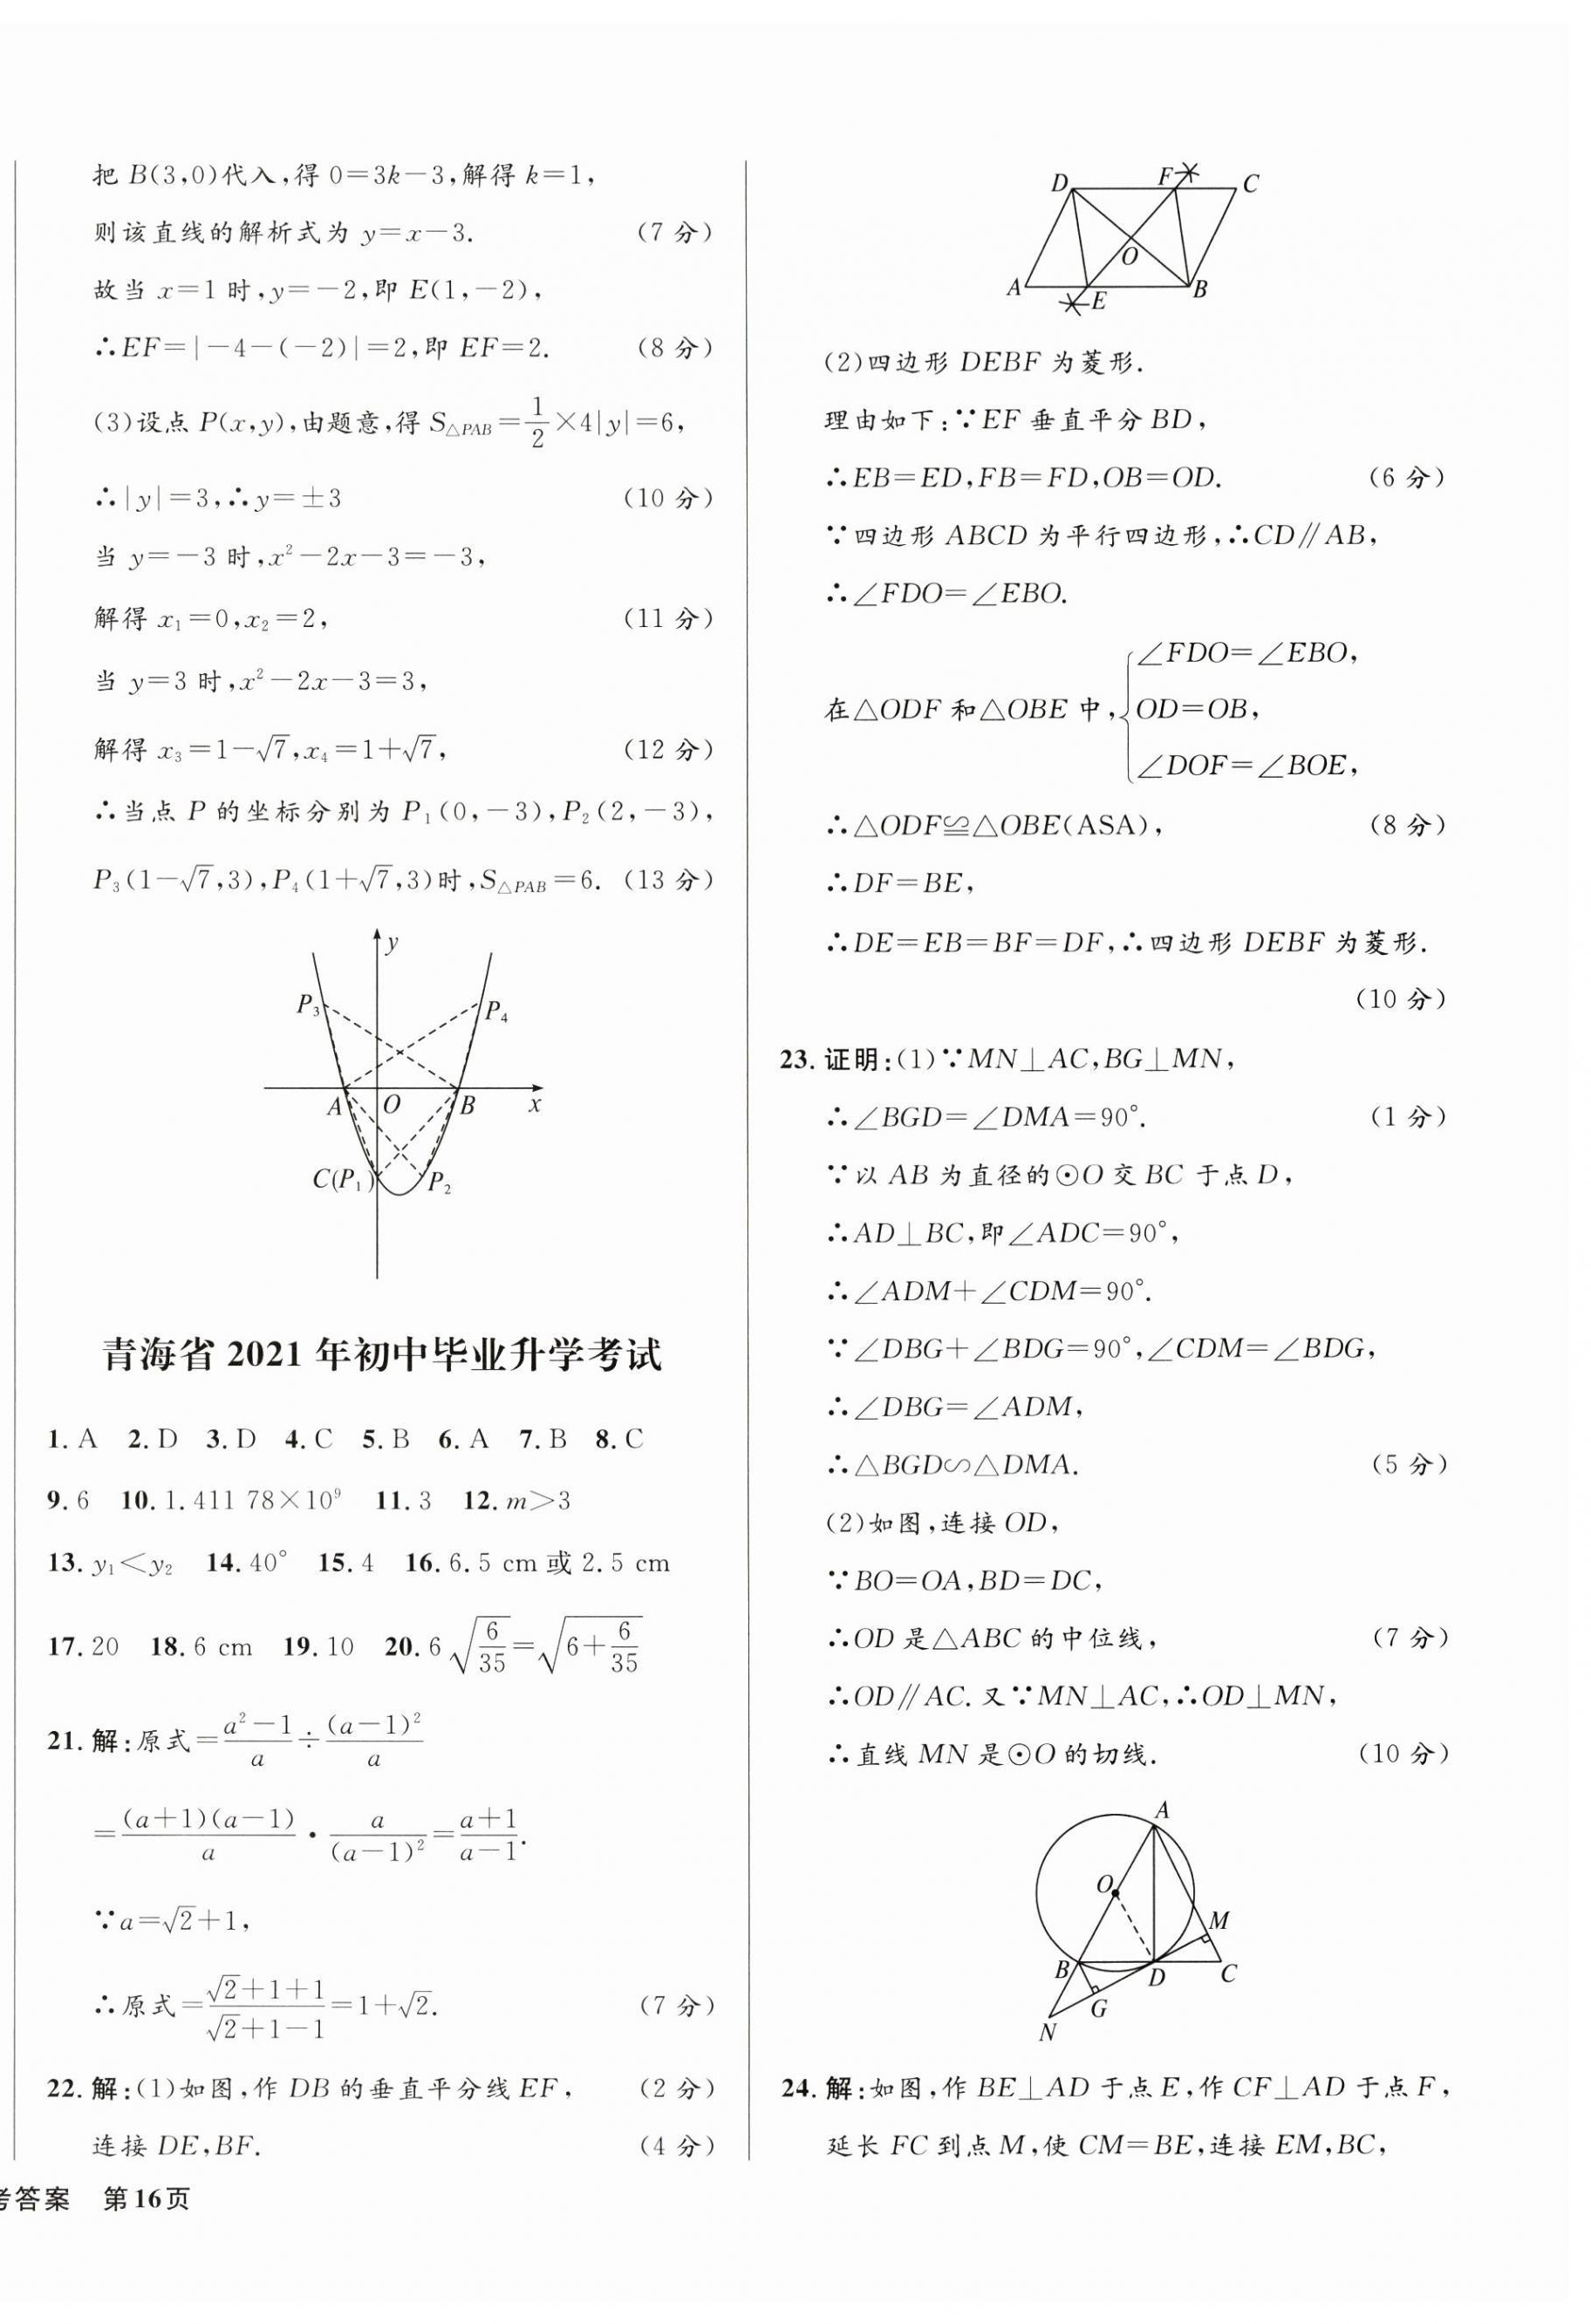 把 B(3,0)代入,得 0=3k-3,解得 k=1,
则该直线的解析式为 y=x-3. (7 分)
故当 x=1 时,y=-2,即 E(1,-2),
∴EF=|-4-(-2)|=2,即 EF=2. (8 分)
(3)设点 P(x,y),由题意,得 S△PAB=1/2×4|y|=6,
∴|y|=3,∴y=±3 (10 分)
当 y=-3 时,x²-2x-3=-3,
解得 x₁=0,x₂=2, (11 分)
当 y=3 时,x²-2x-3=3,
解得 x₃=1-√7,x₄=1+√7, (12 分)
∴当点 P 的坐标分别为 P₁(0,-3),P₂(2,-3),
P₃(1-√7,3),P₄(1+√7,3)时,S△PAB=6. (13 分)
y
P₃
P₄
A
O
B
x
C(P₁)
P₂
青海省 2021 年初中毕业升学考试
1. A 2. D 3. D 4. C 5. B 6. A 7. B 8. C
9. 6 10. 1.411 78×10⁹ 11. 3 12. m>3
13. y₁<y₂ 14. 40° 15. 4 16. 6.5 cm 或 2.5 cm
17. 20 18. 6 cm 19. 10 20. 6√(6/35)=√(6+6/35)
21. 解:原式=(a²-1)/a÷(a-1)²/a
=(a+1)(a-1)/a·a/(a-1)²=(a+1)/(a-1).
∵a=√2+1,
∴原式=(√2+1+1)/(√2+1-1)=1+√2. (7 分)
22. 解:(1)如图,作 DB 的垂直平分线 EF, (2 分)
连接 DE,BF. (4 分)
D
F
C
O
A
E
B
(2)四边形 DEBF 为菱形.
理由如下:∵EF 垂直平分 BD,
∴EB=ED,FB=FD,OB=OD. (6 分)
∵四边形 ABCD 为平行四边形,∴CD∥AB,
∴∠FDO=∠EBO.
∠FDO=∠EBO,
在△ODF 和△OBE 中,{OD=OB,
∠DOF=∠BOE,
∴△ODF≌△OBE(ASA), (8 分)
∴DF=BE,
∴DE=EB=BF=DF,∴四边形 DEBF 为菱形.
(10 分)
23. 证明:(1)∵MN⊥AC,BG⊥MN,
∴∠BGD=∠DMA=90°. (1 分)
∵以 AB 为直径的⊙O 交 BC 于点 D,
∴AD⊥BC,即∠ADC=90°,
∴∠ADM+∠CDM=90°.
∵∠DBG+∠BDG=90°,∠CDM=∠BDG,
∴∠DBG=∠ADM,
∴△BGD∽△DMA. (5 分)
(2)如图,连接 OD,
∵BO=OA,BD=DC,
∴OD 是△ABC 的中位线, (7 分)
∴OD∥AC. 又∵MN⊥AC,∴OD⊥MN,
∴直线 MN 是⊙O 的切线. (10 分)
A
O
M
B
D
C
G
N
24. 解:如图,作 BE⊥AD 于点 E,作 CF⊥AD 于点 F,
延长 FC 到点 M,使 CM=BE,连接 EM,BC,
考答案 第16页